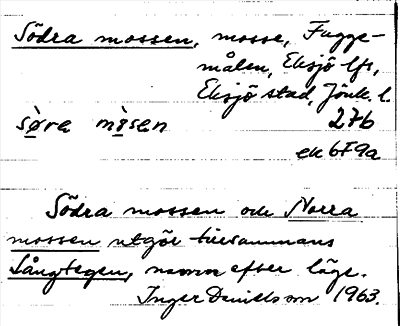 Södra mossen, mosse, Fugge-
målen, Eksjö lfs,
Eksjö stad, Jönk. l.
sòra mòsen 27b
ek 6F9a
Södra mossen och Norra
mossen utgör tillsammans
Långtegen, namn efter läge.
Inger Danielsson 1963.